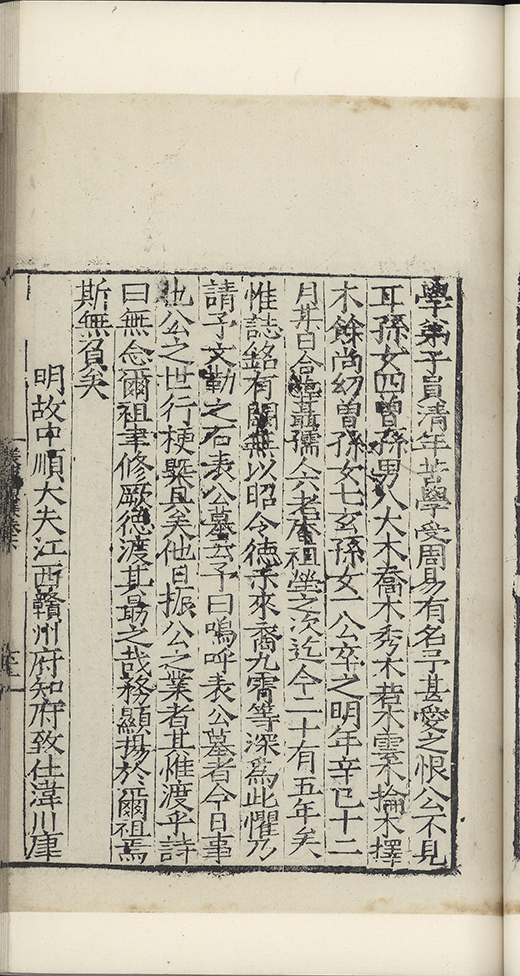 學弟子員清年苦學受周易有名予甚愛之恨公不見
耳孫女四曾孫男八大木喬木秀木若木雲木掄木擇
木餘尚幼曾孫女七玄孫女一公卒之明年辛巳十二
月某日合葬聶孺人六老庵祖塋之次迄今二十有五年矣
惟誌銘有闕無以昭令德示來裔九霄等深為此懼乃
請予文勒之石表公墓云予曰嗚呼表公墓者今日事
也公之世行梗槩具矣他日振公之業者其惟渡乎詩
曰無念爾祖聿修厥德渡其勗之哉務顯揚於爾祖焉
斯無負矣
明故中順大夫江西贛州府知府致仕湋川康